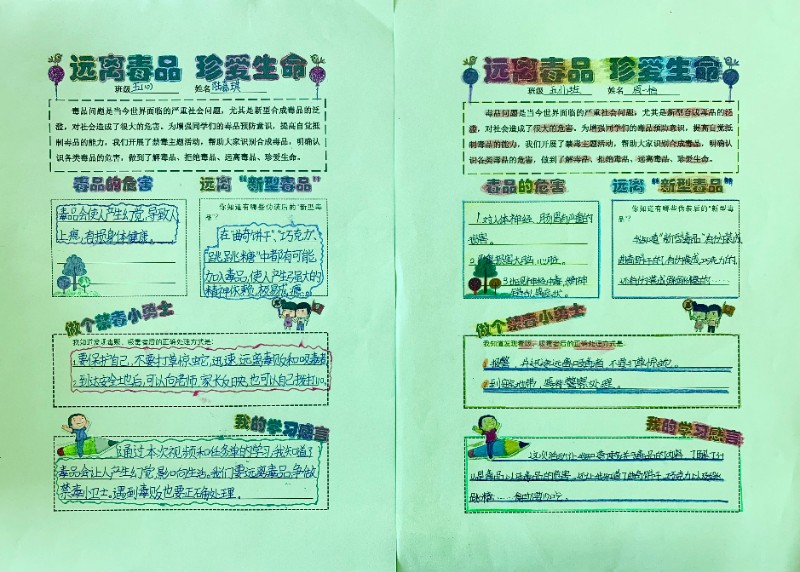 远离毒品 珍爱生命
班级 五(1) 姓名
毒品问题是当今世界面临的严重社会问题,尤其是新型合成毒品的泛
滥,对社会造成了很大的危害,为增强同学们的毒品预防意识,提高自觉抵
制毒品的能力,我们开展了禁毒主题活动,帮助大家识别合成毒品,明确认
识各类毒品的危害,做到了解毒品、拒绝毒品、远离毒品、珍爱生命。
毒品的危害
毒品会使人产生幻觉,导致人
上瘾,有损身体健康。
远离“新型毒品”
你知道有哪些伪装后的“新型毒
品”?
在曲奇饼干、“巧克力”、
“跳跳糖”中都有可能
加入毒品,使人产生强大的
精神依赖,极易成瘾。
做个禁毒小勇士
我知道发现毒贩、吸毒者后的正确处理方式是:
1.要保护自己,不要打草惊蛇,迅速远离毒贩和吸毒者
2.到达安全地后,可以向老师、家长反映,也可以自己拨打110。
我的学习感言
通过本次视频和任务单的学习,我知道了
毒品会让人产生幻觉,影响向生活。我们要远离毒品,争做
禁毒小卫士。遇到毒贩也要正确处理。
远离毒品 珍爱生命
班级 五(1)班 姓名
毒品问题是当今世界面临的严重社会问题,尤其是新型合成毒品的泛
滥,对社会造成了很大的危害,为增强同学们的毒品预防意识,提高自觉抵
制毒品的能力,我们开展了禁毒主题活动,帮助大家识别合成毒品,明确认
识各类毒品的危害,做到了解毒品、拒绝毒品、远离毒品、珍爱生命。
毒品的危害
1.对人体神经、
危害。
2. 大脑、心脏。
远离“新型毒品”
你知道有哪些伪装后的“新型毒
品”?
我知道“新型毒品”有伪装成
做个禁毒小勇士
我知道发现毒贩、吸毒者后的正确处理方式是:
1.报警,并迅速远离吸毒者,不要打草惊蛇。
2.到 警察处理。
我的学习感言